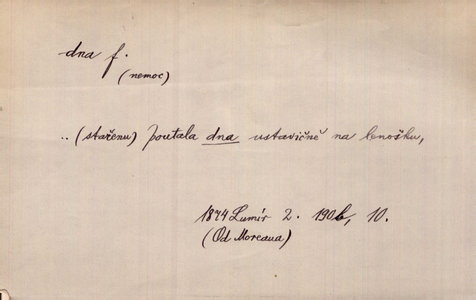 dna f.
(nemoc)
.. (stařenu) poutala dna ustavičně na lenošku,
1874 Lumír 2. 190b, 10.
(Od Moreaua)